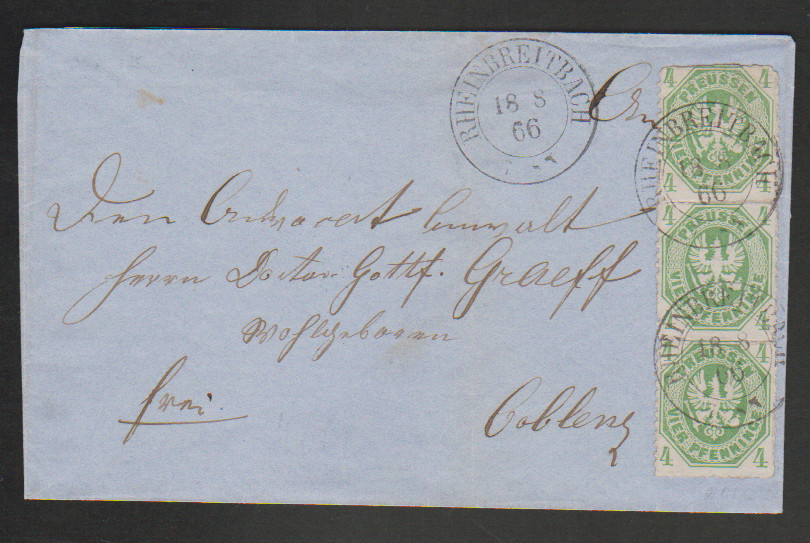 RHEINBREITBACH
18 8
66
An
Den Advocat Anwalt
Herrn Doctor Gottf. Graeff
Wohlgeboren
frei
Coblenz
4 4
PREUSSEN
VIER PFENNINGE
4 4
RHEINBREITBACH
18 8
66
PREUSSEN
VIER PFENNINGE
4
4
RHEINBREITBACH
18 8
66
PREUSSEN
VIER PFENNINGE
4 4